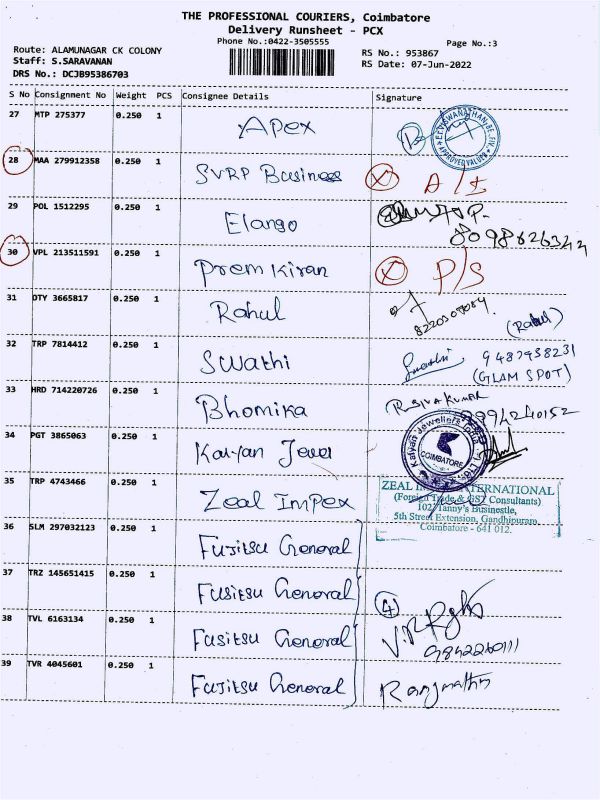 THE PROFESSIONAL COURIERS, Coimbatore
Delivery Runsheet - PCX
Phone No.:0422-3505555
Page No.:3
Route: ALAMUNAGAR CK COLONY
Staff: S.SARAVANAN
DRS No.: DCJB95386703
RS No.: 953867
RS Date: 07-Jun-2022
S No Consignment No Weight PCS Consignee Details Signature
27 MTP 275377 0.250 1 Apex
28 MAA 279912358 0.250 1 SVRP Business A/I
29 POL 1512295 0.250 1 Elango
30 VPL 213511591 0.250 1 Prem Kiran P/S
31 DTY 3665817 0.250 1 Rahul
(Rahul)
32 TRP 7814412 0.250 1 Swathi Swathi 9487958231
(GLAM SPOT)
33 HRD 714220726 0.250 1 Bhomika R. SIVA KUMAR
34 PGT 3865063 0.250 1 Kalyan Jewel
Kalyan Jewellers
COIMBATORE
35 TRP 4743466 0.250 1 Zeal Impex
ZEAL INTERNATIONAL
(Foreign Trade & GST Consultants)
102, Tanny's Businestle,
5th Street Extension, Gandhipuram,
Coimbatore - 641 012.
36 SLM 297032123 0.250 1 Fujitsu General
37 TRZ 145651415 0.250 1 Fujitsu General
4
38 TVL 6163134 0.250 1 Fujitsu General
39 TVR 4045601 0.250 1 Fujitsu General